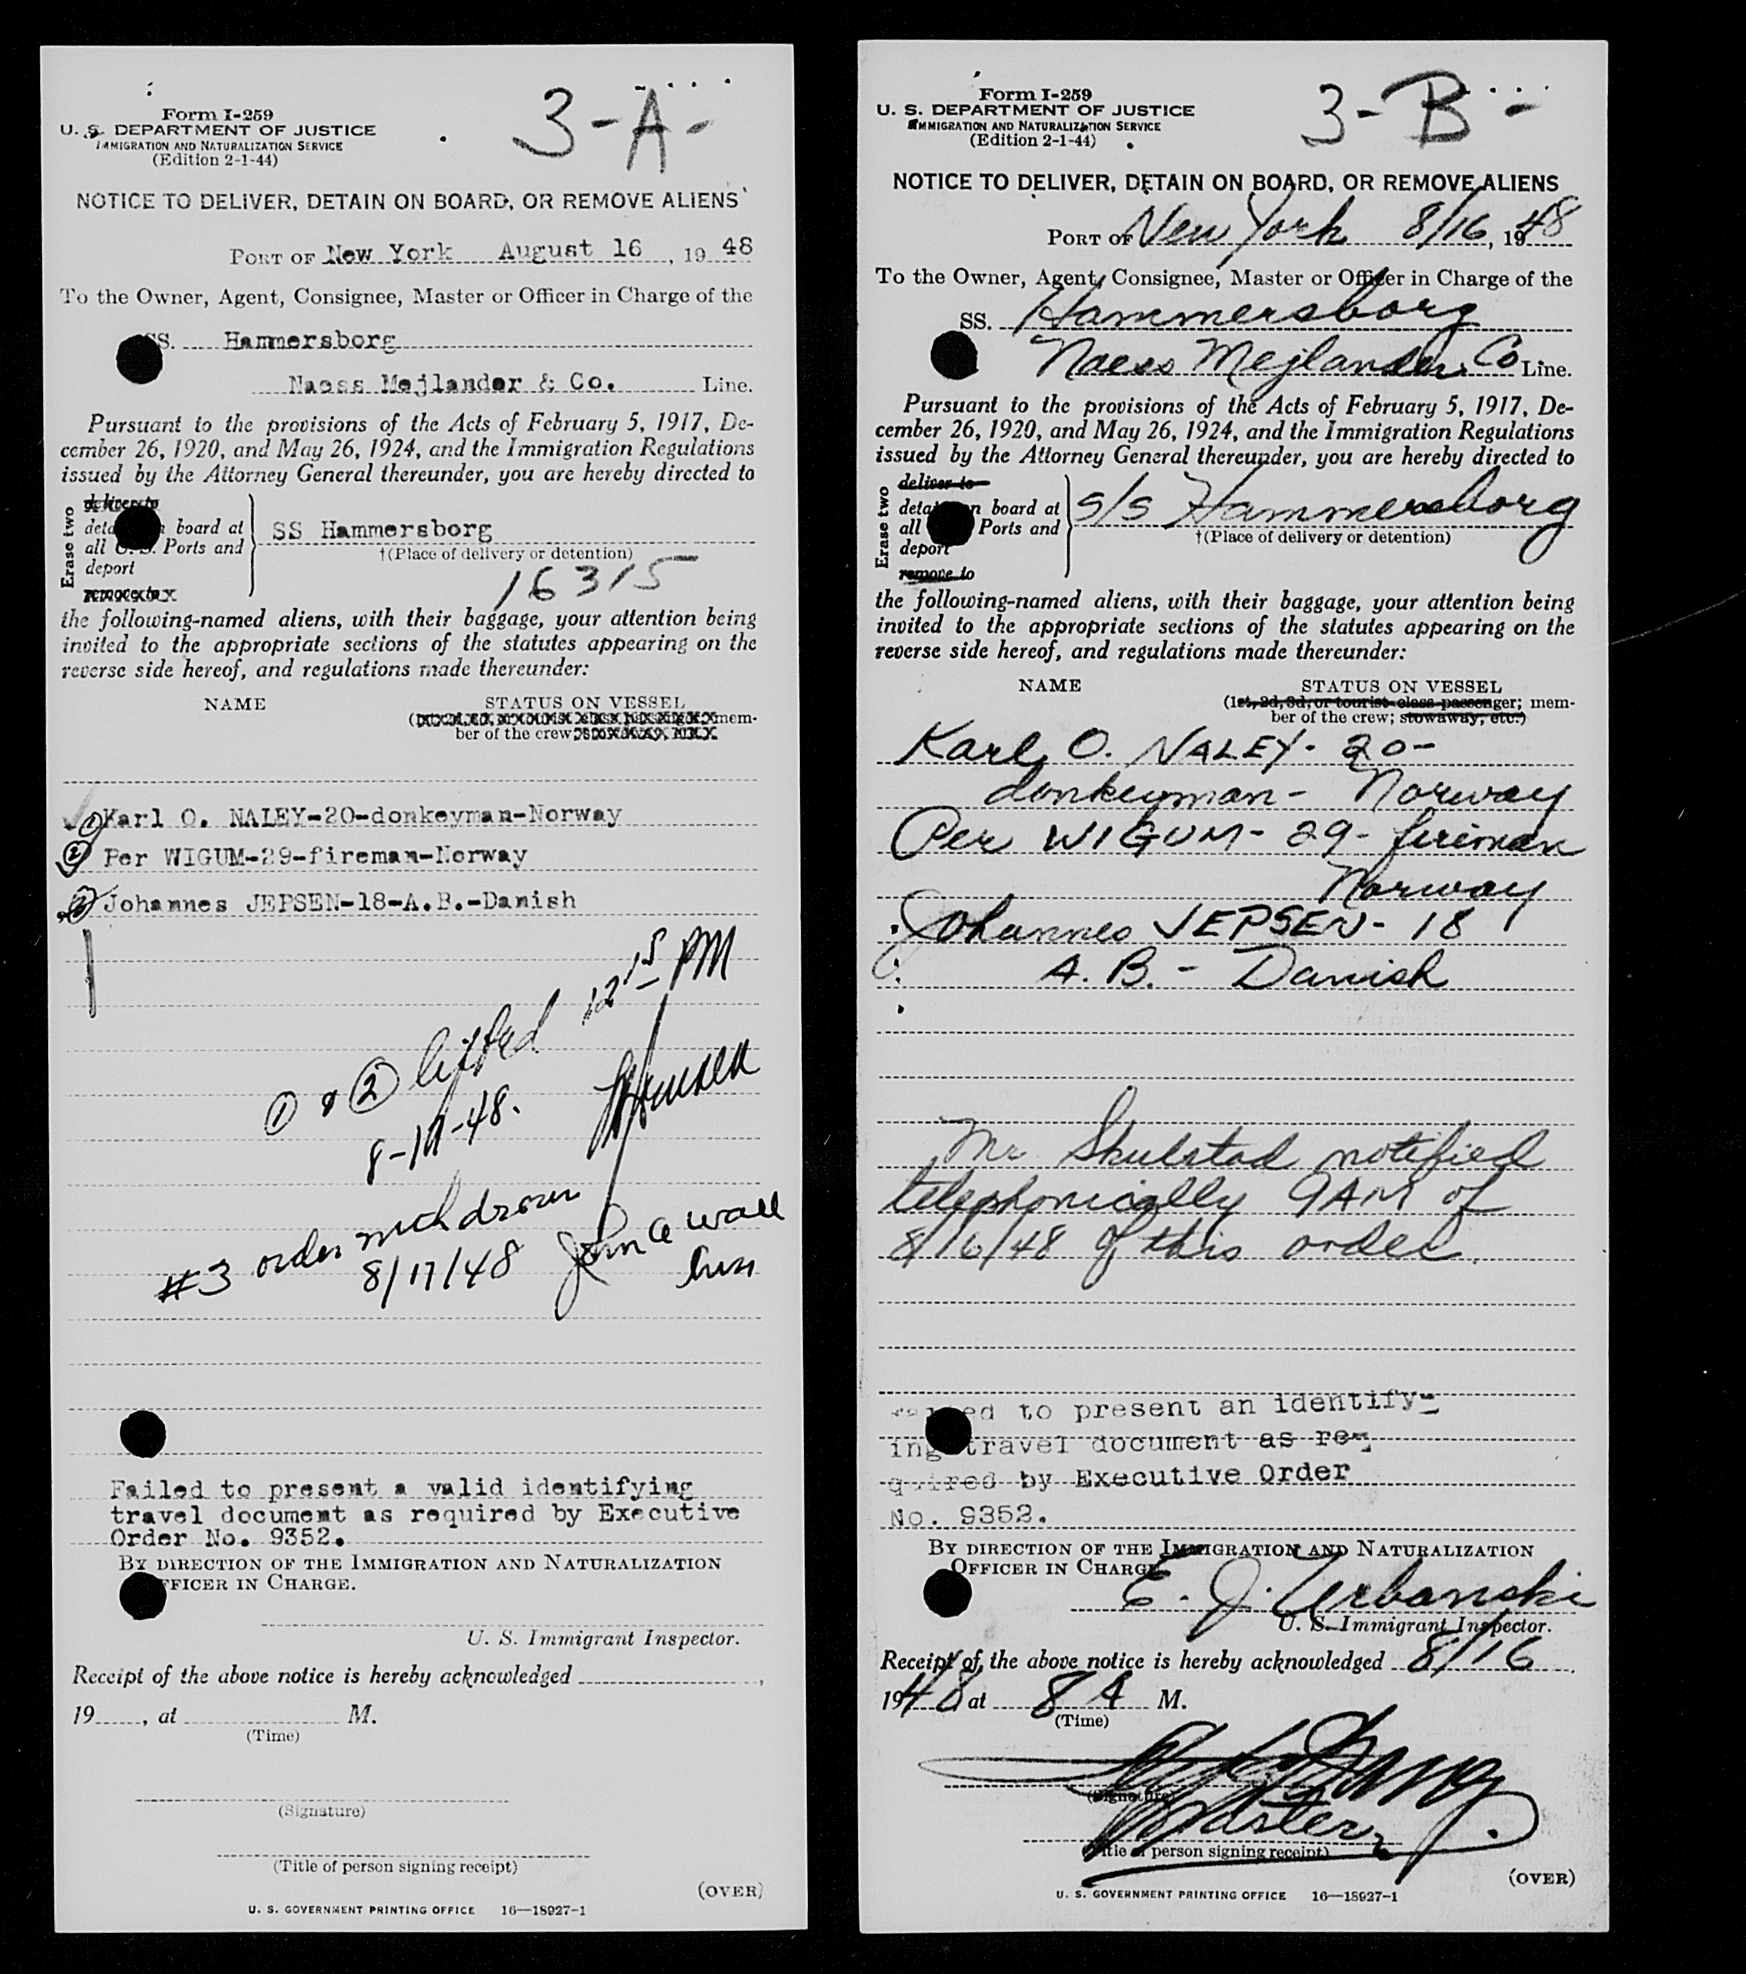 Form I-259
U. S. DEPARTMENT OF JUSTICE
IMMIGRATION AND NATURALIZATION SERVICE
(Edition 2-1-44)
3-A-
NOTICE TO DELIVER, DETAIN ON BOARD, OR REMOVE ALIENS
PORT OF New York August 16, 19 48
To the Owner, Agent, Consignee, Master or Officer in Charge of the
SS. Hammersborg
Naess Mejlander & Co. Line.
Pursuant to the provisions of the Acts of February 5, 1917, De-
cember 26, 1920, and May 26, 1924, and the Immigration Regulations
issued by the Attorney General thereunder, you are hereby directed to
Erase two
deliver to
board at
all U. S. Ports and
deport
remove to
SS Hammersborg
†(Place of delivery or detention)
16315
the following-named aliens, with their baggage, your attention being
invited to the appropriate sections of the statutes appearing on the
reverse side hereof, and regulations made thereunder:
NAME STATUS ON VESSEL
mem-
ber of the crew;
1 Karl O. NALEY-20-donkeyman-Norway
2 Per WIGUM-29-fireman-Norway
3 Johannes JEPSEN-18-A.B.-Danish
1 & 2 lifted 12 15 PM
8-17-48.
#3 order withdrawn
8/17/48 John A Wall
Insp
Failed to present a valid identifying
travel document as required by Executive
Order No. 9352.
BY DIRECTION OF THE IMMIGRATION AND NATURALIZATION
OFFICER IN CHARGE.
U. S. Immigrant Inspector.
Receipt of the above notice is hereby acknowledged ,
19 , at M.
(Time)
(Signature)
(Title of person signing receipt)
(OVER)
U. S. GOVERNMENT PRINTING OFFICE 16—18927-1
Form I-259
U. S. DEPARTMENT OF JUSTICE
IMMIGRATION AND NATURALIZATION SERVICE
(Edition 2-1-44)
3-B-
NOTICE TO DELIVER, DETAIN ON BOARD, OR REMOVE ALIENS
PORT OF New York 8/16, 19 48
To the Owner, Agent, Consignee, Master or Officer in Charge of the
SS. Hammersborg
Naess Mejlander Co Line.
Pursuant to the provisions of the Acts of February 5, 1917, De-
cember 26, 1920, and May 26, 1924, and the Immigration Regulations
issued by the Attorney General thereunder, you are hereby directed to
Erase two
deliver to
board at
all Ports and
deport
remove to
S/S Hammersborg
†(Place of delivery or detention)
the following-named aliens, with their baggage, your attention being
invited to the appropriate sections of the statutes appearing on the
reverse side hereof, and regulations made thereunder:
NAME STATUS ON VESSEL
(1st, 2d, 3d, or tourist class passenger; mem-
ber of the crew; stowaway, etc.)
Karl O. NALEY- 20-
donkeyman- Norway
Per WIGUM- 29- fireman
Norway
Johannes JEPSEN- 18
A. B. - Danish
Mr Skulstad notified
telephonically 9AM of
8/16/48 of this order.
to present an identify-
ing travel document as re-
quired by Executive Order
No. 9352.
BY DIRECTION OF THE IMMIGRATION AND NATURALIZATION
OFFICER IN CHARGE
E. J. Urbanski
U. S. Immigrant Inspector.
Receipt of the above notice is hereby acknowledged 8/16,
1948 at 8 A M.
(Time)
(Signature)
Master
(Title of person signing receipt)
(OVER)
U. S. GOVERNMENT PRINTING OFFICE 16—18927-1